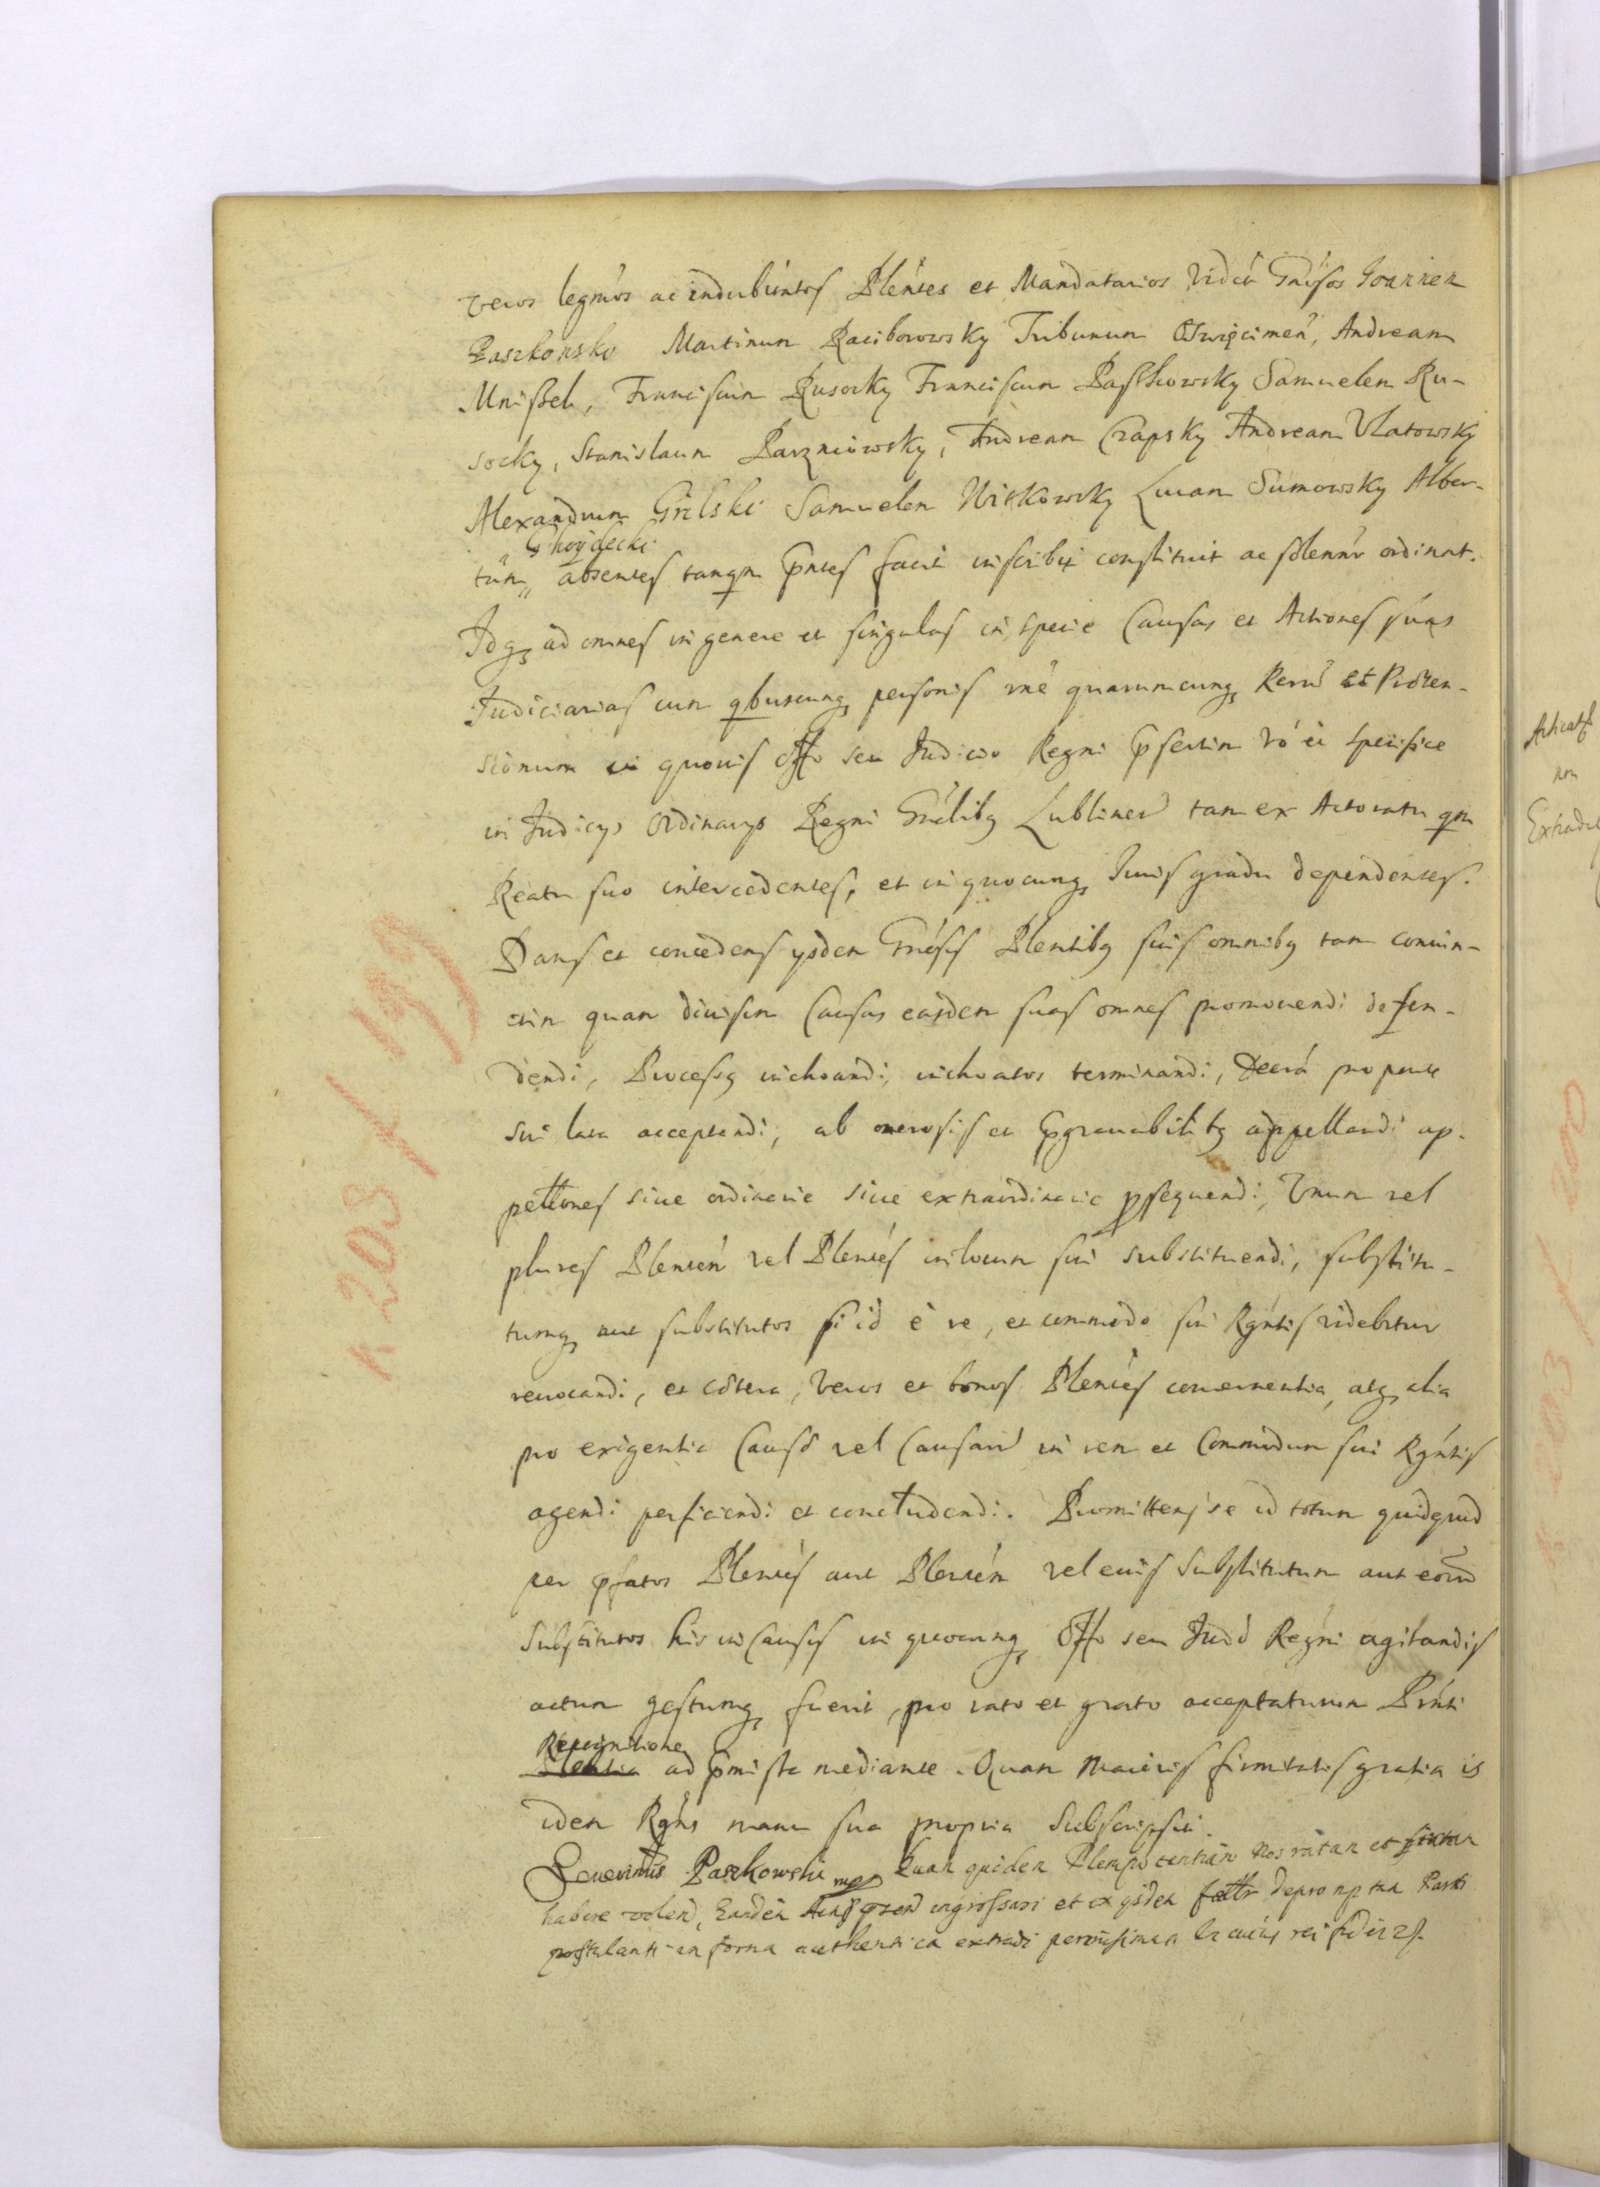 veros legmos ac indubitatos Plentes et Mandatarios videt Gnosos Joannem
Paszkowski Martinum Raciborowsky Tribunum Oswięcimen, Andream
Mniszek, Franciscum Rusocky Franciscum Paszkowsky Samuelem Ru-
socky, Stanislaum Parzniowsky, Andream Czapsky Andream Vlatowsky
Alexandrum Grilski Samuelem Witkowsky Lucam Sumowsky Alber-
Choydecki
tum absentes tanqm pntes facit inscribit constituit ac solennr ordinat.
Idq ad omnes in genere et singulas in specie Causas et Actiones suas
Judiciarias cum qbuscunq personis rne quarumcunq Reru et Proten-
sionum in quovis Offo seu Judicio Regni psertim vo et specifice
in Judicys Ordinarys Regni Gnlibq Lublinen tam ex Actoratu qm
Reatu suo intercedentes, et in quocunq Juris gradu dependentes.
Dans et concedens ysdem Gnosis Plentibq suis omnibq tam coniun-
ctim quam divisim Causas easdem suas omnes promovendi defen-
dendi, Processq inchoandi, inchoatos terminandi, Decra pro parte
sui lata acceptandi, ab onerosis et pgravabilibq appellandi ap-
pellones sive ordinarie sive extraordinarie psequendi, Unum vel
plures Plenten vel Plentes in locum sui substituendi, substitu-
tumq aut substitutos si id e re, et commodo sui Rgntis videbitur
revocandi, et cætera, veros et bonos Plentes concernentia, atq alia
pro exigentia Causæ vel Causaru in rem et Commodum sui Rgntis
agendi perficiendi et concludendi. Promittens se id totum quidquid
per pfatos Plentes aut Plenten vel eius substitutum aut eoru
Substitutos his in Causis in quocunq Offo seu Judo Regni agitandis
actum gestumq fuerit, pro rato et grato acceptaturum Prnti
Recognitione
Plentia ad pmissa mediante. Quam Maioris firmitatis gratia is
idem Rgns manu sua propria Subscripsit.
Severinus Paszkowski mp Quam quidem Plenipotentiam nos ratam et
habere volen, Eandem Actis pren ingrossari et ex ysdem depromptam Parti
postulanti in forma authentica extradi permisimus In cuius rei fidem
k 203 f 199